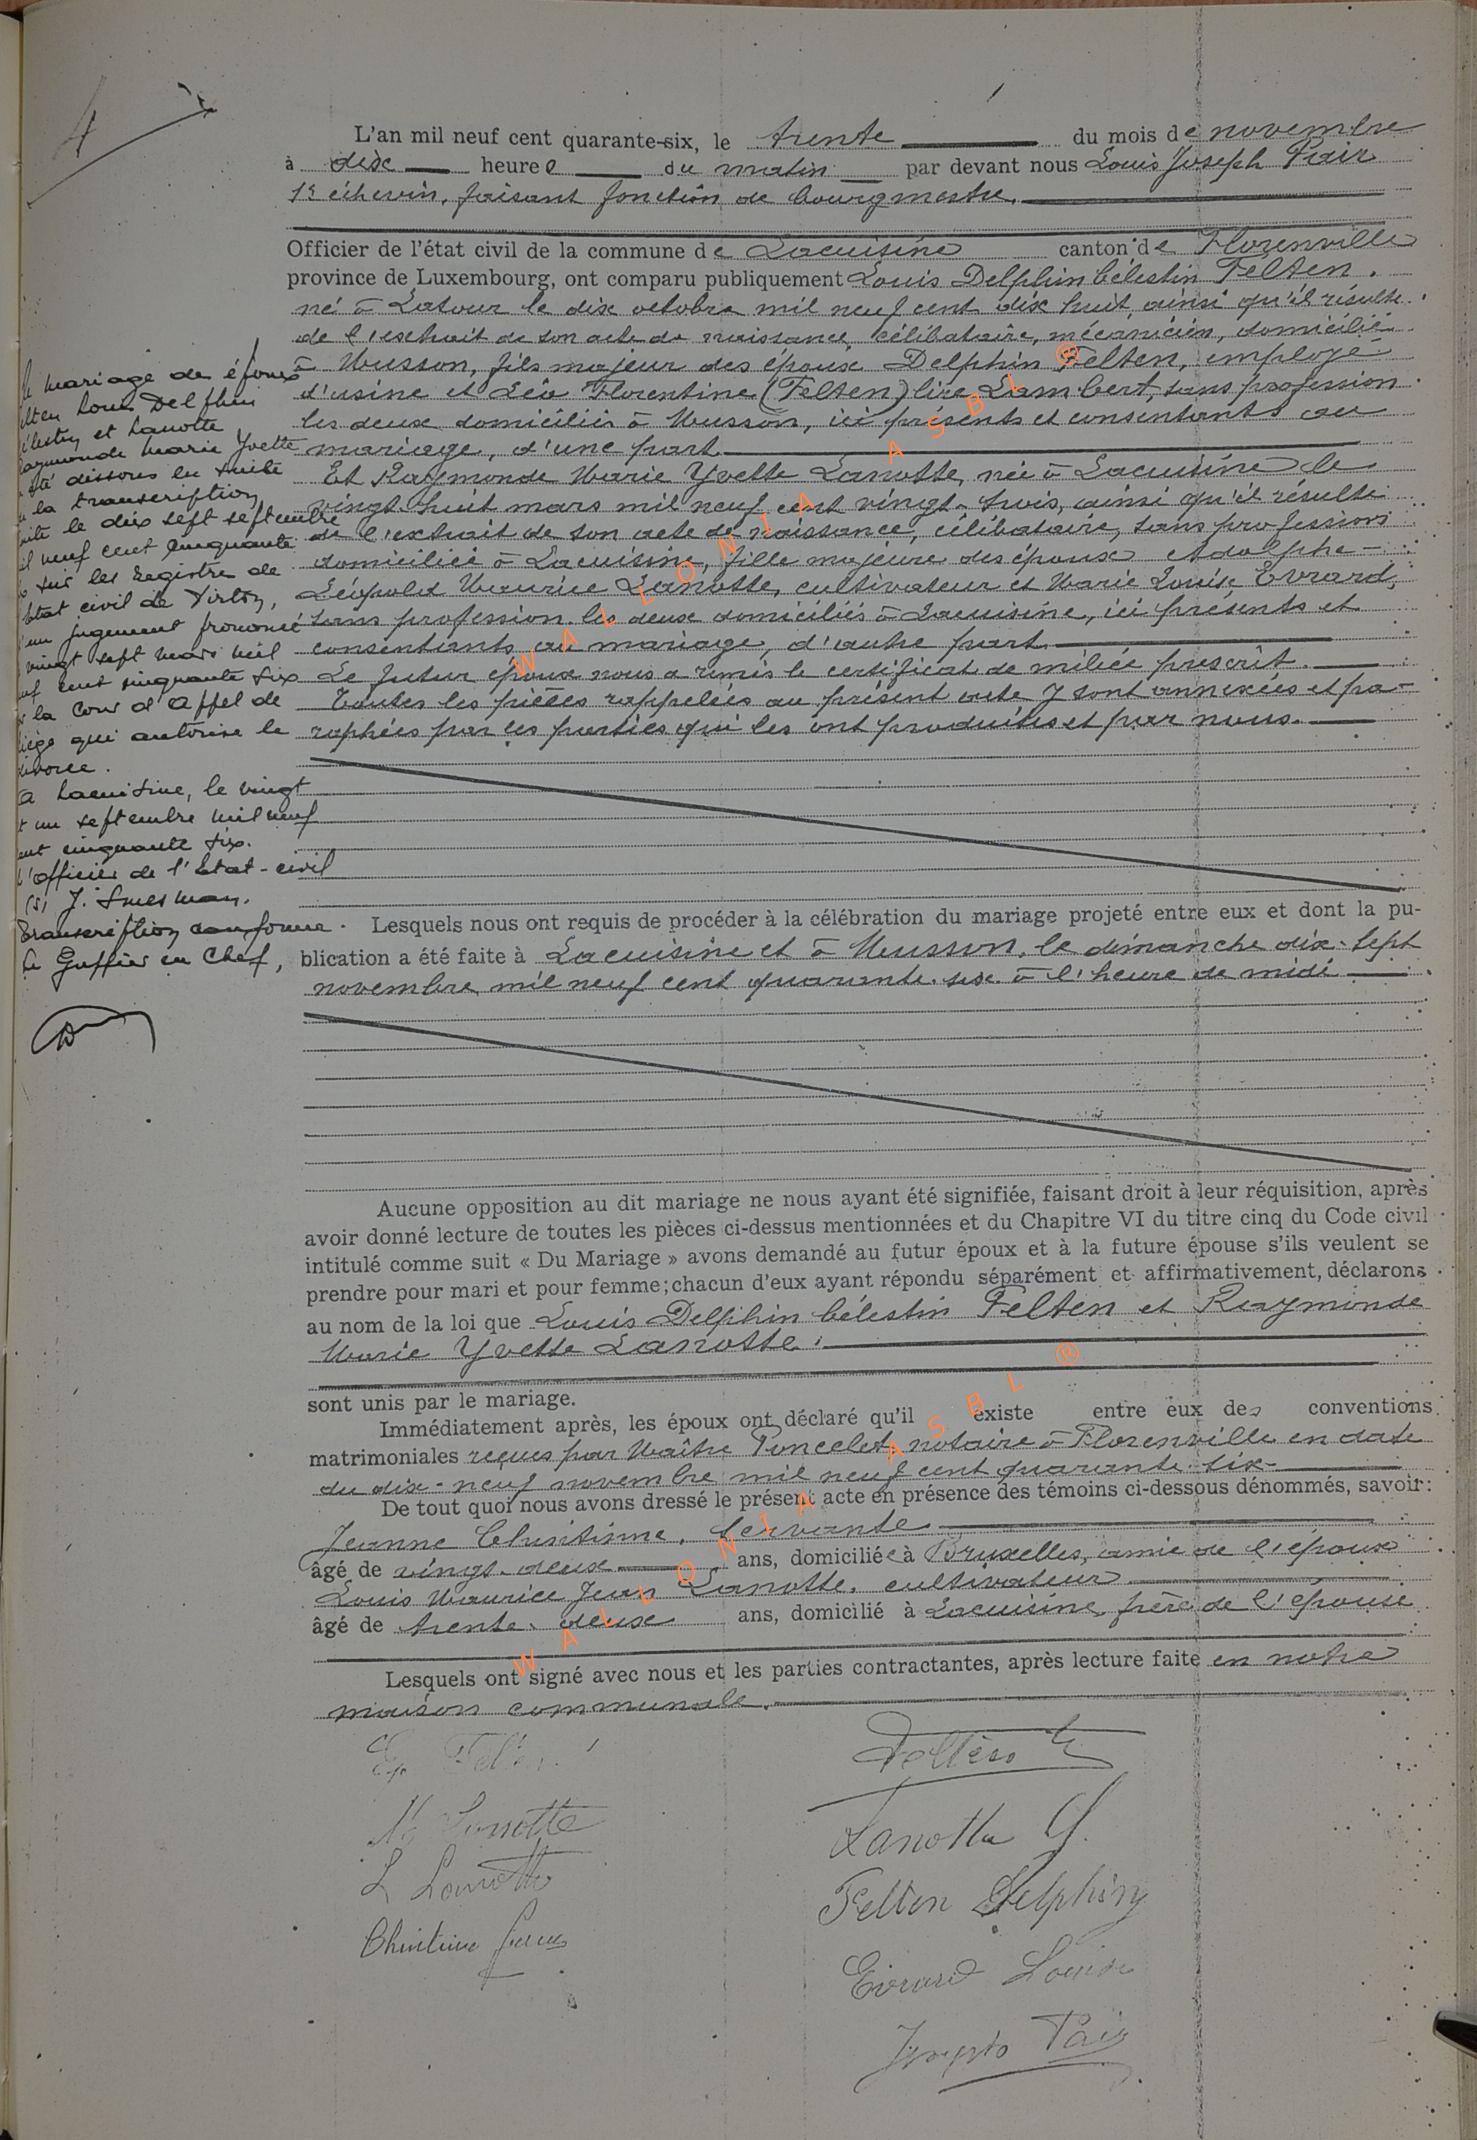 4
L'an mil neuf cent quarante-six, le trente du mois de novembre
à dix heures du matin par devant nous Louis Joseph Pair
1r échevin, faisant fonction de bourgmestre.
Officier de l'état civil de la commune de Lacuisine canton de Florenville
province de Luxembourg, ont comparu publiquement Louis Delphin Célestin Felten,
né à Latour le dix octobre mil neuf cent dix huit, ainsi qu'il résulte
de l'extrait de son acte de naissance, célibataire, mécanicien, domicilié
à Musson, fils majeur des époux Delphin Felten, employé
d'usine et Léo Florentine (Felten) lire Lambert, sans profession
les deux domiciliés à Musson, ici présents et consentants au
mariage, d'une part.
Et Raymonde Marie Yvette Lanotte, née à Lacuisine le
vingt huit mars mil neuf cent vingt-trois, ainsi qu'il résulte
de l'extrait de son acte de naissance, célibataire, sans profession
domiciliée à Lacuisine, fille majeure des époux Adolphe-
Léopold Maurice Lanotte, cultivateur et Marie Louise Evrard,
sans profession, les deux domiciliés à Lacuisine, ici présents et
consentants au mariage, d'autre part.
Le futur époux nous a remis le certificat de milice prescrit.
Toutes les pièces rappelées au présent acte y sont annexées et pa-
raphées par les parties qui les ont produites et par nous.
mariage des époux
Felten Louis Delphin
Célestin et Lanotte
Raymonde Marie Yvette
été dissous en suite
la transcription
faite le dix sept septembre
mil neuf cent cinquante
sur les Registre de
l'état civil de Virton,
d'un jugement prononcé
vingt sept mars mil
neuf cent cinquante six
la Cour d'Appel de
Liège qui autorise le
divorce.
A Lacuisine, le vingt
et un septembre mil neuf
cent cinquante six.
L'officier de l'Etat-civil
(s) J.
Transcription conforme.
Le Greffier en Chef,
Lesquels nous ont requis de procéder à la célébration du mariage projeté entre eux et dont la pu-
blication a été faite à Lacuisine et à Musson, le dimanche dix-sept
novembre mil neuf cent quarante-six à l'heure de midi
Aucune opposition au dit mariage ne nous ayant été signifiée, faisant droit à leur réquisition, après
avoir donné lecture de toutes les pièces ci-dessus mentionnées et du Chapitre VI du titre cinq du Code civil
intitulé comme suit « Du Mariage » avons demandé au futur époux et à la future épouse s'ils veulent se
prendre pour mari et pour femme; chacun d'eux ayant répondu séparément et affirmativement, déclarons
au nom de la loi que Louis Delphin Célestin Felten et Raymonde
Marie Yvette Lanotte.
sont unis par le mariage.
Immédiatement après, les époux ont déclaré qu'il existe entre eux des conventions
matrimoniales reçues par Maître Poncelet, notaire à Florenville en date
du dix-neuf novembre mil neuf cent quarante-six-
De tout quoi nous avons dressé le présent acte en présence des témoins ci-dessous dénommés, savoir:
Jeanne Christinne, servante
âgé de vingt-deux ans, domiciliée à Bruxelles, amie de l'époux
Louis Maurice Jean Lanotte, cultivateur
âgé de trente-deux ans, domicilié à Lacuisine, frère de l'épouse
Lesquels ont signé avec nous et les parties contractantes, après lecture faite en notre
maison communale.
Felten
Felten
M Lanotte
Lanotte Y.
L Lanotte
Felten Delphin
Evrard Louise
Joseph Pair
WALLONIA ASBL ®
WALLONIA ASBL ®